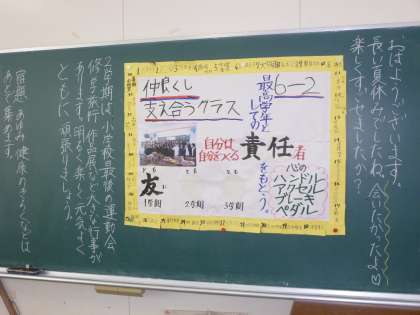 おはようございます。
長い夏休みでしたね。会いたかったよ♡
楽しくすごせましたか?
6-2
最高学年としての責任をもとう。
仲良くし
支え合うクラス
自分は
自分をつくる
責任者
心の
ハンドル
アクセル
ブレーキ
ペダル
友
とも
1学期
2学期
3学期
2学期は、小学校最後の運動会、
修学旅行、作品展など大きな行事が
あります。明るく楽しく元気よく
ともに、頑張りましょう。
宿題、あゆみ、健康のきろくなどは
あとで集めます。